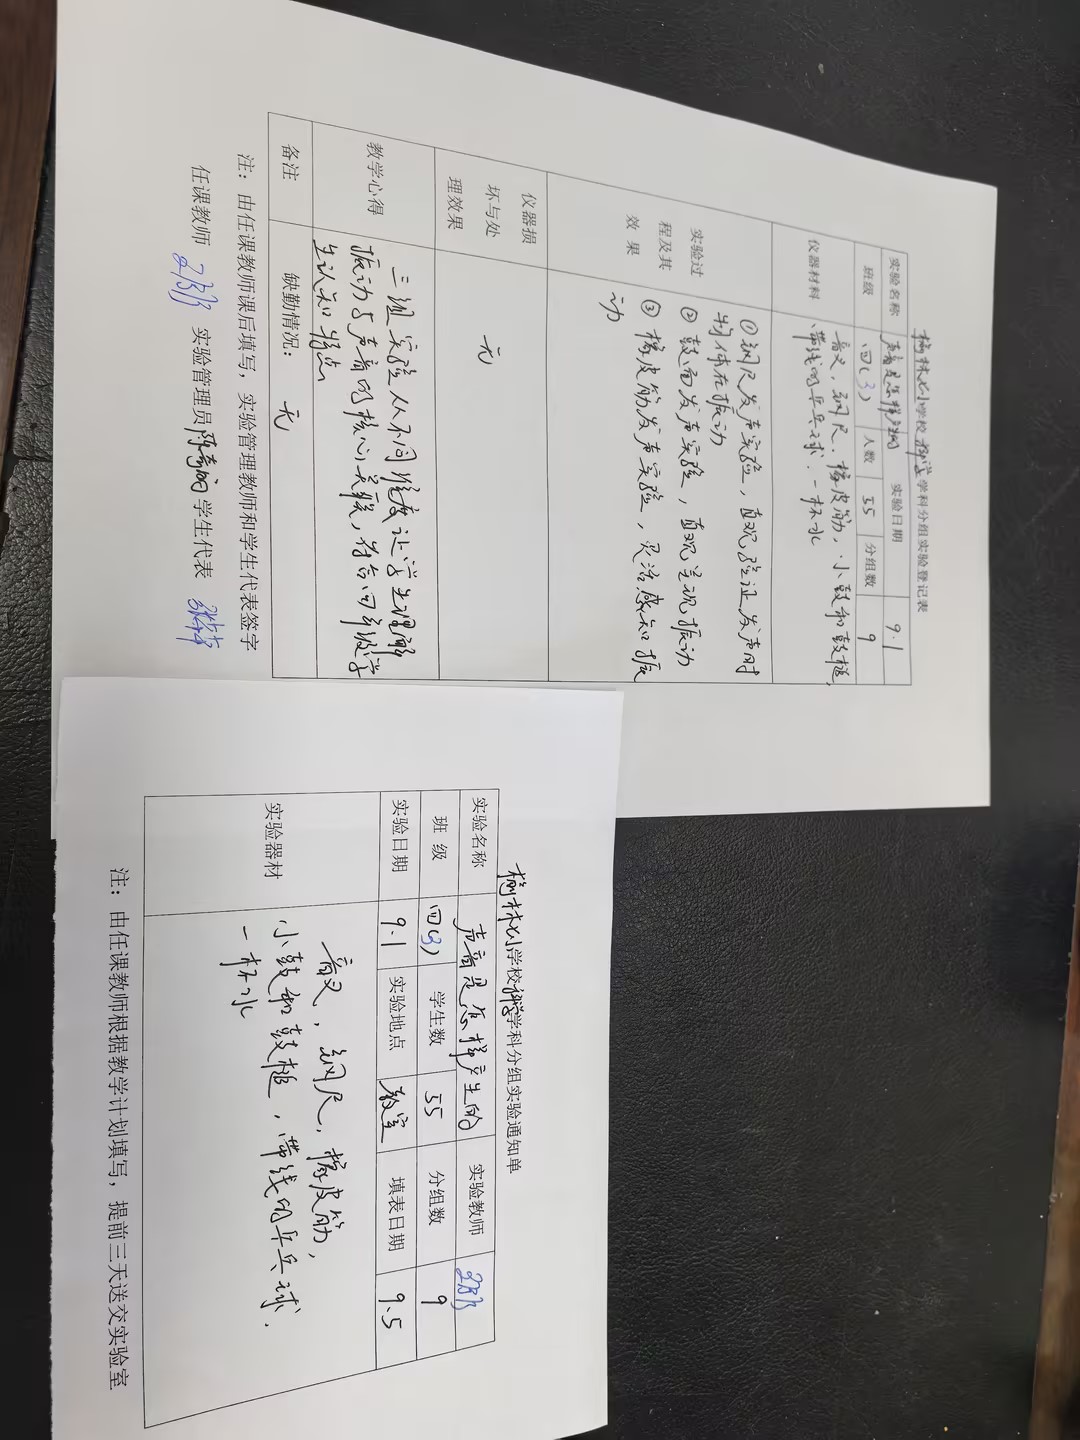 榆林小学校科学学科分组实验登记表
实验名称 声音是怎样产生的 实验日期 9.1
班级 四(3) 人数 35 分组数 9
仪器材料 音叉,钢尺、橡皮筋,小鼓和鼓槌,
带线的乒乓球.一杯水
实验过
程及其
效果
①钢尺发声实验,直观验证发声时
物体在振动
② 鼓面发声实验,直观呈现振动
③ 橡皮筋发声实验,灵活感知振
动
仪器损
坏与处
理效果
无
教学心得
三组实验从不同维度让学生理解
振动与声音的核心关联,符合四年级学
生认知特点
备注 缺勤情况: 无
注:由任课教师课后填写,实验管理教师和学生代表签字
任课教师 实验管理员 学生代表
榆林小学校科学学科分组实验通知单
实验名称 声音是怎样产生的 实验教师
班 级 四(3) 学生数 35 分组数 9
实验日期 9.1 实验地点 教室 填表日期 9.5
实验器材
音叉,钢尺,橡皮筋,
小鼓和鼓槌,带线的乒乓球.
一杯水
注:由任课教师根据教学计划填写,提前三天送交实验室